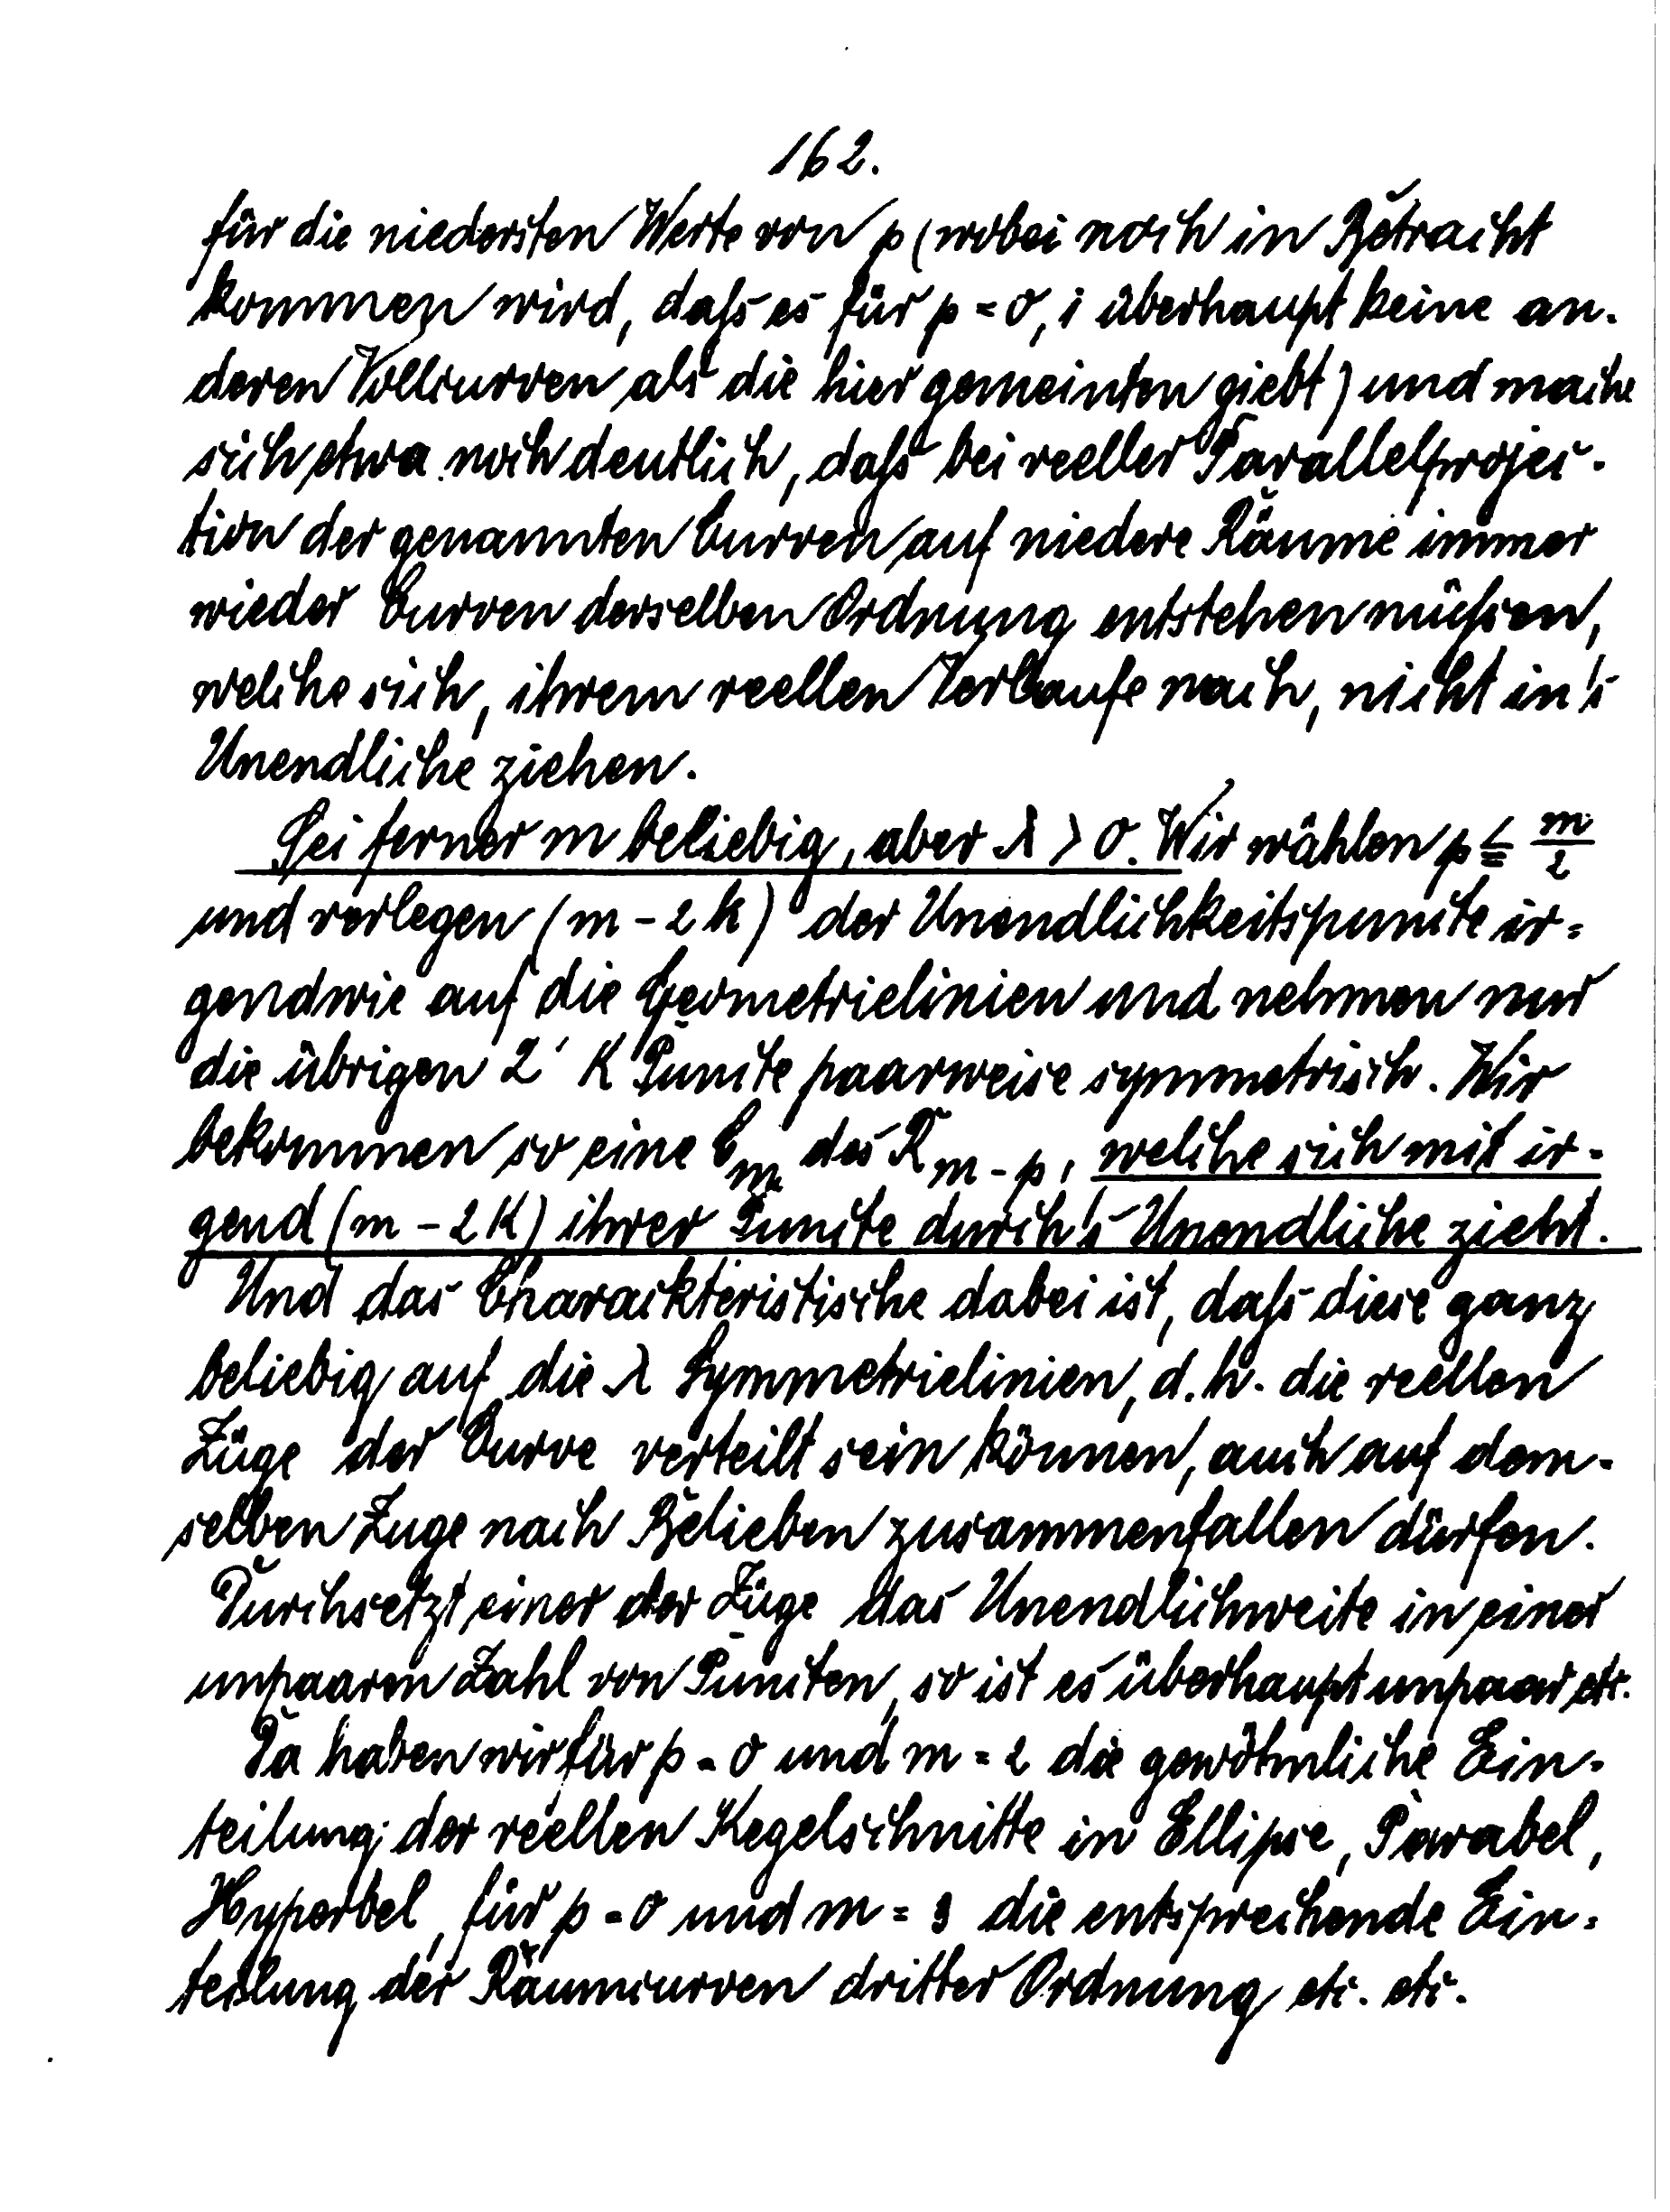 162.
für die niedersten Werte von p (wobei noch in Betracht
kommen wird, daſs es für p = 0, 1 überhaupt keine an-
deren Vollcurven als die hier gemeinten giebt) und mache
sich etwa noch deutlich, daſs bei reeller Parallelprojec-
tion der genannten Curven auf niedere Räume immer
wieder Curven derselben Ordnung entstehen müſsen,
welche sich, ihrem reellen Verlaufe nach, nicht in's
Unendliche ziehen.
Sei ferner m beliebig, aber λ > 0. Wir wählen p ≦ m/2
und verlegen (m - 2k) der Unendlichkeitspuncte ir-
gendwie auf die Geometrielinien und nehmen nur
die übrigen 2 K Puncte paarweise symmetrisch. Wir
bekommen so eine C_m des R_{m-p}, welche sich mit ir-
gend (m - 2K) ihrer Puncte durch's Unendliche zieht.
Und das Charackteristische dabei ist, daſs diese ganz
beliebig auf die λ Symmetrielinien, d.h. die reellen
Züge der Curve verteilt sein können, auch auf dem-
selben Zuge nach Belieben zusammenfallen dürfen.
Durchsetzt einer der Züge das Unendlichweite in einer
unpaaren Zahl von Puncten, so ist es überhaupt unpaar, etc.
Da haben wir für p = 0 und m = 2 die gewöhnliche Ein-
teilung der reellen Kegelschnitte in Ellipse, Parabel,
Hyperbel, für p = 0 und m = 3 die entsprechende Ein-
teilung der Raumcurven dritter Ordnung etc. etc.